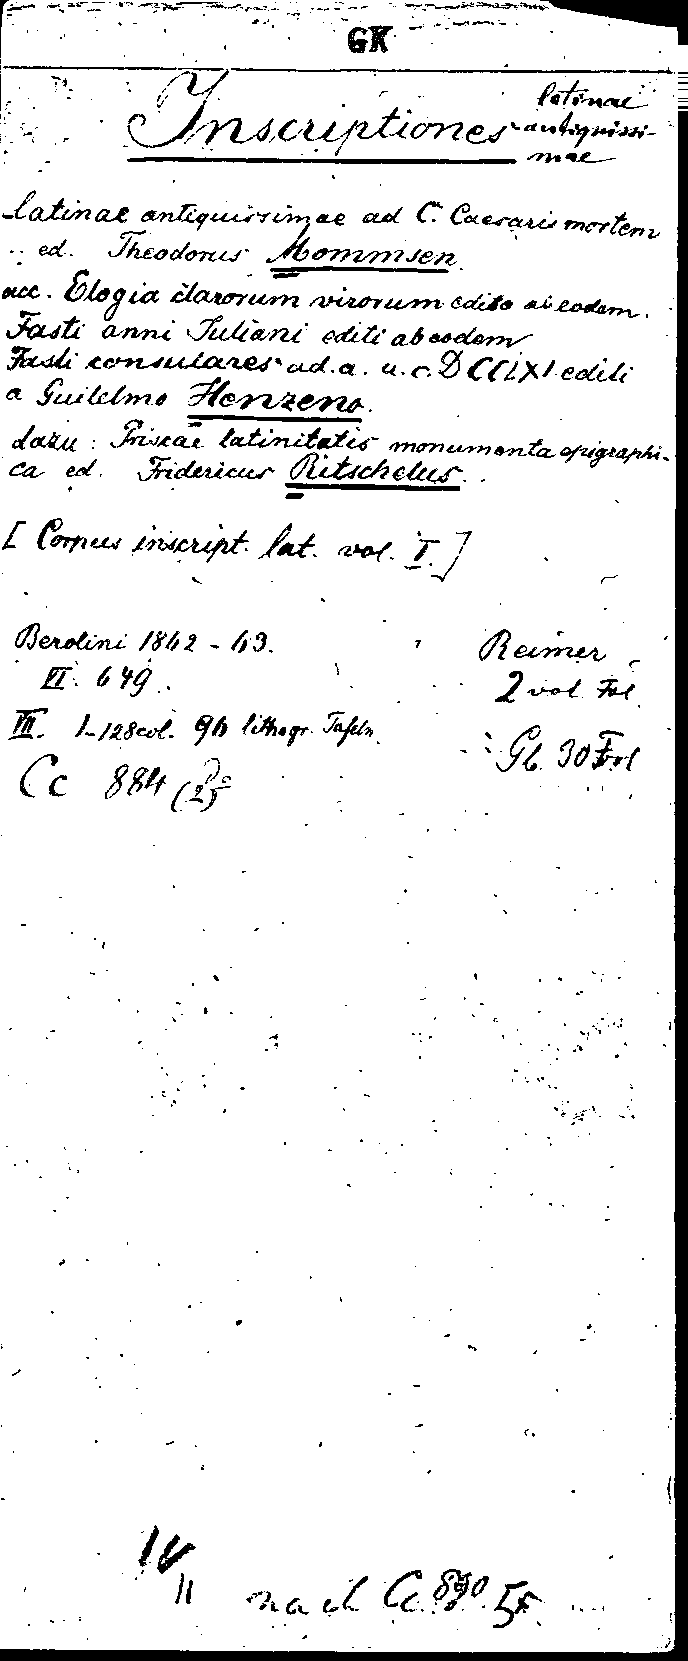 GK
Inscriptiones latinae
antiquissi-
mae
latinae antiquissimae ad C. Caesaris mortem
ed. Theodorus Mommsen.
acc. Elogia clarorum virorum edita ab eodem.
Fasti anni Iuliani editi ab eodem
Fasti consulares ad. a. u. c. DCCLXI editi
a Guilelmo Henzeno.
dazu: Priscae latinitatis monumenta epigraphi-
ca ed. Fridericus Ritschelus.
[Corpus inscript. lat. vol. I.]
Berolini 1862 - 63. Reimer
VI. 649. 2 vol. Fol.
VIII. 1-128 col. 96 lithogr. Tafeln.
Gb. 30 Frl
Cc 884 (2)
IV
II
nach Cc. 890. 5F.